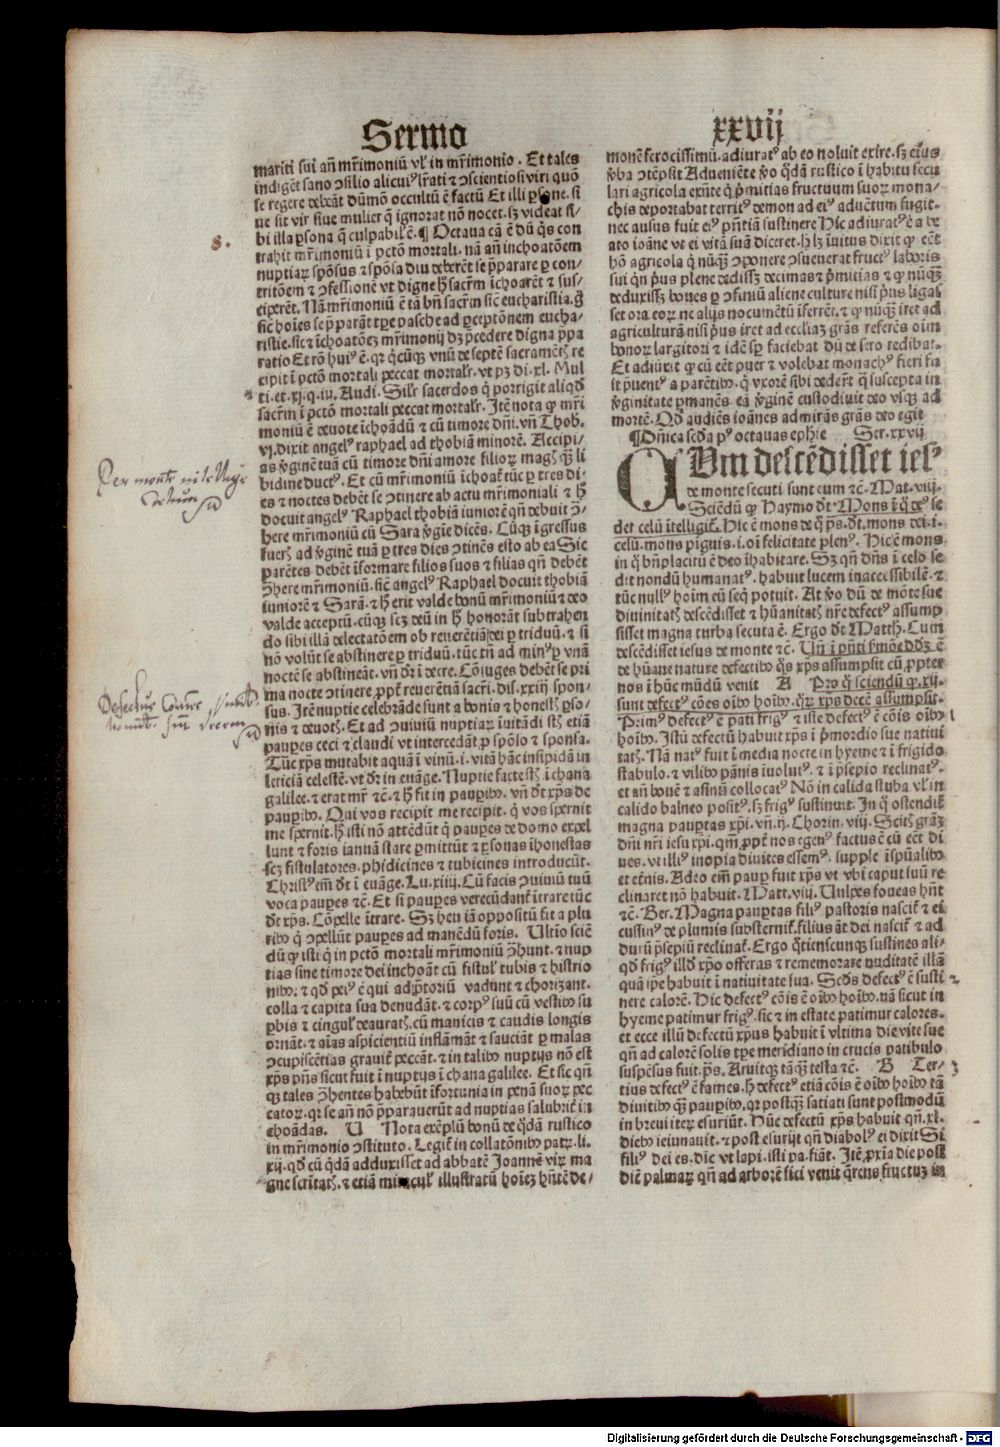 Sermo xxvij
mariti sui añ mr̃imoniũ vl' in mr̃imonio. Et tales
indigẽt sano ↄsilio alicuiꝰ lr̃ati ⁊ ↄscientiosi viri quõ
se regere debeãt dũmõ occultũ ẽ factũ Et illi ꝑsone. si
ue sit vir siue mulier q̃ ignorat nõ nocet. sꝫ videat si/
bi illa ꝑsona q̃ culpabil' ẽ. ¶ Octaua cã ẽ dũ q̇s con
8.
trahit mr̃imoniũ ĩ pctõ mortali. nã añ inchoatõem
nuptiaꝝ spõsus ⁊ spõsa diu deberẽt se p̃parare ꝑ con/
tritõem ⁊ ↄfessionẽ vt digne h̃ sacr̃m ĩchoarẽt ⁊ sus/
ciperẽt. Nã mr̃imoniũ ẽ tã bñ sacr̃m sic̃ eucharistia. g̃
sic̃ hoĩes se p̃parãt tꝑe pasche ad ꝑceptõnem eucha/
ristie. sic ⁊ ĩchoatõeꝫ mr̃imonij dꝫ p̃cedere digna p̃pa
ratio Et rõ huiꝰ ẽ. qꝛ q̇cũqꝫ vnũ de septẽ sacramẽtꝭ re
cipit ĩ pctõ mortali peccat mortalr̃. vt pꝫ di. xl. Mul
ti. et. xj. q. iij. Audi. Silr̃ sacerdos q̇ porrigit aliqd̃
sacr̃m ĩ pctõ mortali peccat mortalr̃. Itẽ nota ꝙ mr̃i
moniũ ẽ deuote ĩchoãdũ ⁊ cũ timore dñi. vñ Thob.
vj. dixit angelꝰ raphael ad thobiã minorẽ. Accipi/
as ỽginẽ tuã cũ timore dñi amore filioꝝ magꝭ qꝫ li
bidine ductꝰ. Et cũ mr̃imoniũ ĩchoat̃ tũc ꝑ tres di/
es ⁊ noctes debẽt se ↄtinere ab actu mr̃imoniali ⁊ h̃
docuit angelꝰ Raphael thobiã iuniorẽ qñ debuit ↄ/
here mr̃imoniũ cũ Sara ỽgĩe dicẽs. Cũqꝫ ĩgressus
fuerꝭ ad ỽginẽ tuã ꝑ tres dies ↄtinẽs esto ab ea Sic
parẽtes debẽt ĩformare filios suos ⁊ filias qñ debẽt
ↄhere mr̃imoniũ. sic̃ angelꝰ Raphael docuit thobiã
iuniorẽ ⁊ Sarã. ⁊ h̃ erit valde bonũ mr̃imoniũ ⁊ deo
valde acceptũ. cũqꝫ scꝫ deũ in h̃ honorãt subtrahen
do sibi illã delectatõem ob reuerẽtiã dei ꝑ triduũ. ⁊ si
nõ volũt se abstinere ꝑ triduũ. tũc tñ ad minꝰ ꝑ vnã
noctẽ se abstineãt. vñ dr̃ ĩ decre. Cõiuges debẽt se pri
ma nocte ↄtinere ꝓpt̃ reuerẽtiã sacr̃i. dis. xxiij spon/
sus. Itẽ nuptie celebrãde sunt a bonis ⁊ honestꝭ ꝑso/
nis ⁊ deuotꝭ. Et ad ↄuiuiũ nuptiaꝝ ĩuitãdi sũt etiã
pauꝑes ceci ⁊ claudi vt intercedãt ꝓ spõso ⁊ sponsa.
Tũc xp̃s mutabit aquã ĩ vinũ. i. vitã hãc insipidã in
leticiã celestẽ. vt dr̃ in euãge. Nuptie facte sũt ĩ chana
galilee. ⁊ erat mr̃ ⁊c̃. ⁊ h̃ fit in pauꝑibꝰ. vñ dt̃ xp̃s de
pauꝑibꝰ. Qui vos recipit me recipit. q̇ vos spernit
me spernit. h̃ isti nõ attẽdũt q̇ pauꝑes de domo expel
lunt ⁊ foris ianuã stare ꝑmittũt ⁊ ꝑsonas ĩhonestas
scꝫ fistulatores. phidicines ⁊ tubicines introducũt.
Christꝰ em̃ dt̃ ĩ euãge. Lu. xiiij. Cũ facis ↄuiuiũ tuũ
voca pauꝑes ⁊c̃. Et si pauꝑes verecũdant̃ ĩtrare tũc
dt̃ xp̃s. Cõpelle ĩtrare. Sꝫ heu iã oppositũ fit a plu
ribꝰ q̇ ↄpellũt pauꝑes ad manẽdũ foris. Ultĩo sciẽ
dũ ꝙ isti q̇ in pctõ mortali mr̃imoniũ ↄhunt. ⁊ nup
tias sine timore dei inchoãt cũ fistulꝭ tubis ⁊ histrio
nibꝰ. ⁊ qd̃ peiꝰ ẽ qui ad p̃toriũ vadunt ⁊ chorizant.
colla ⁊ capita sua denudãt. ⁊ corpꝰ suũ cũ vestibꝰ su
ꝑbis ⁊ cingulꝭ deauratꝭ. cũ manicis ⁊ caudis longis
ornãt. ⁊ aĩas aspicientiũ inflãmãt ⁊ sauciãt ꝑ malas
ↄcupiscẽtias grauit̃ peccãt. ⁊ in talibꝰ nuptijs nõ est
xp̃s pñs sicut fuit ĩ nuptijs ĩ chana galilee. Et sic qñ
qꝫ tales ↄhentes habebũt ĩfortunia in penã suoꝝ pec
catoꝝ. qꝛ se añ nõ p̃parauerũt ad nuptias salubrit̃ in
choãdas. U Nota exẽplũ bonũ de q̇dã rustico
in mr̃imonio ↄstituto. Legit̃ in collatõnibꝰ patꝝ. li.
xij. qd̃ cũ q̇dã adduxisset ad abbatẽ Joannẽ viꝝ ma
gne scr̃itatꝭ. ⁊ etiã miraculꝭ illustratũ hoĩeꝫ hñtẽ de/
monẽ ferocissimũ. adiuratꝰ ab eo noluit exire. sꝫ eiꝰ
ỽba ↄtẽpsit Adueniẽte ỽo q̇dã rustico ĩ habitu secu
lari agricola exñte q̇ p̃mitias fructuum suoꝝ mona/
chis deportabat territꝰ demon ad eiꝰ aduẽtum fugit.
nec ausus fuit eiꝰ pñtiã sustinere Hic adiuratꝰ ẽ a be
ato ioãne vt ei vitã suã diceret. h̃ lꝫ ĩuitus dixit ꝙ eẽt
hõ agricola q̇ nũqꝫ ↄponere ↄsueuerat fructꝰ laboris
sui q̇n p̃us plene dedissꝫ decimas ⁊ p̃mitias ⁊ ꝙ nũqꝫ
deduxissꝫ boues ꝑ ↄfiniũ aliene culture nisi p̃us ligas
set ora eoꝝ ne alijs nocumẽtũ ĩferrẽt. ⁊ ꝙ nũqꝫ iret ad
agriculturã nisi p̃us iret ad eccliaꝫ grãs referẽs oĩm
bonoꝝ largitori ⁊ idẽ sꝑ faciebat dũ de sero redibat.
Et adiũxit ꝙ cũ eẽt puer ⁊ volebat monachꝰ fieri fu
it p̃uentꝰ a parẽtibꝰ. q̇ vxorẽ sibi dederũt q̃ suscepta in
ỽginitate ꝑmanẽs. eã ỽginẽ custodiuit deo vsqꝫ ad
mortẽ. Qd̃ audiẽs ioãnes admirãs grãs deo egit
¶ Dñica scd̃a pꝰ octauas ephie Ser. xxvij
QUm descẽdisset iesꝰ
de monte secuti sunt eum ⁊c̃. Mat. viij.
Sciẽdũ ꝙ Haymo dt̃. Mons ĩ q̇ deꝰ se
det celũ ĩtelligit̃. Hic ẽ mons de q̇ p̃s. dt̃. mons dei. i.
celũ. mons pĩguis. i. oĩ felicitate plenꝰ. Hic ẽ mons
in q̇ bñplacitũ ẽ deo ĩhabitare. Sꝫ qñ dñs ĩ celo se
dit nondũ humanatꝰ. habuit lucem inaccessibilẽ. ⁊
tũc nullꝰ hoĩm eũ seq̇ potuit. At ỽo dũ de mõte sue
diuinitatꝭ descẽdisset ⁊ hũanitatꝭ nr̃e defectꝰ assump
sisset magna turba secuta ẽ. Ergo dt̃ Matth. Cum
descẽdisset iesus de monte ⁊c̃. Uñ ĩ pñti sermõe ddꝫ ẽ
de hũane nature defectibꝰ q̇s xp̃s assumpsit cũ ꝓpter
nos ĩ hũc mũdũ venit A Pro q̇ sciendũ ꝙ. xij.
sunt defectꝰ cões oĩbꝰ hoĩbꝰ. q̇ꝝ xp̃s decẽ assumpsit.
Primꝰ defectꝰ ẽ pati frigꝰ ⁊ iste defectꝰ ẽ cõis oĩbꝰ
hoĩbꝰ. Istũ defectũ habuit xp̃s ĩ p̃mordio sue natiui
tatꝭ. Nã natꝰ fuit ĩ media nocte in hyeme ⁊ ĩ frigido
stabulo. ⁊ vilibꝰ pãnis ĩuolutꝰ. ⁊ ĩ p̃sepio reclinatꝰ.
et añ bouẽ ⁊ asinũ collocatꝰ Nõ in calida stuba vl' in
calido balneo positꝰ. sꝫ frigꝰ sustinuit. In q̇ ostendit̃
magna pauꝑtas xp̃i. vñ. ij. Chorin. viij. Scitꝭ grãꝫ
dñi nr̃i iesu xp̃i. qm̃ ꝓpt̃ nos egenꝰ factus ẽ cũ eẽt di
ues. vt illiꝰ inopia diuites essemꝰ. supple ĩ spũalibꝰ
et et̃nis. Adeo em̃ pauꝑ fuit xp̃s vt vbi caput suũ re
clinaret nõ habuit. Matt. viij. Uulpes foueas hñt
⁊c̃. Ber. Magna pauꝑtas filiꝰ pastoris nascit̃ ⁊ ei
cussinꝰ de plumis substernit̃. filius aũt dei nascit̃ ⁊ ad
durũ p̃sepiũ reclinat̃. Ergo q̇tienscunqꝫ sustines ali/
qd̃ frigꝰ illd̃ xp̃o offeras ⁊ rememorare nuditatẽ illã
quã ip̃e habuit ĩ natiuitate sua. Scd̃s defectꝰ ẽ susti
nere calorẽ. Hic defectꝰ cõis ẽ oĩbꝰ hoĩbꝰ. nã sicut in
hyeme patimur frigꝰ. sic ⁊ in estate patimur calores.
et ecce illũ defectũ xp̃us habuit ĩ vltima die vite sue
qñ ad calorẽ solis tꝑe meridiano in crucis patibulo
suspẽsus fuit. p̃s. Aruit qꝫ tãqꝫ testa ⁊c̃. B Ter/
tius defectꝰ ẽ fames. h̃ defectꝰ etiã cõis ẽ oĩbꝰ hoĩbꝰ tã
diuitibꝰ qꝫ pauꝑibꝰ. qꝛ postqꝫ satiati sunt postmodũ
in breui iteꝝ esuriũt. Hũc defectũ xp̃s habuit qñ. xl.
diebꝰ ieiunauit. ⁊ post esurijt qñ diabolꝰ ei dixit Si
filiꝰ dei es. dic vt lapi. isti pa. fiãt. Itẽ ꝓxĩa die post
diẽ palmaꝝ qñ ad arborẽ fici venit q̃rens fructuꝫ in
Digitalisierung gefördert durch die Deutsche Forschungsgemeinschaft - DFG